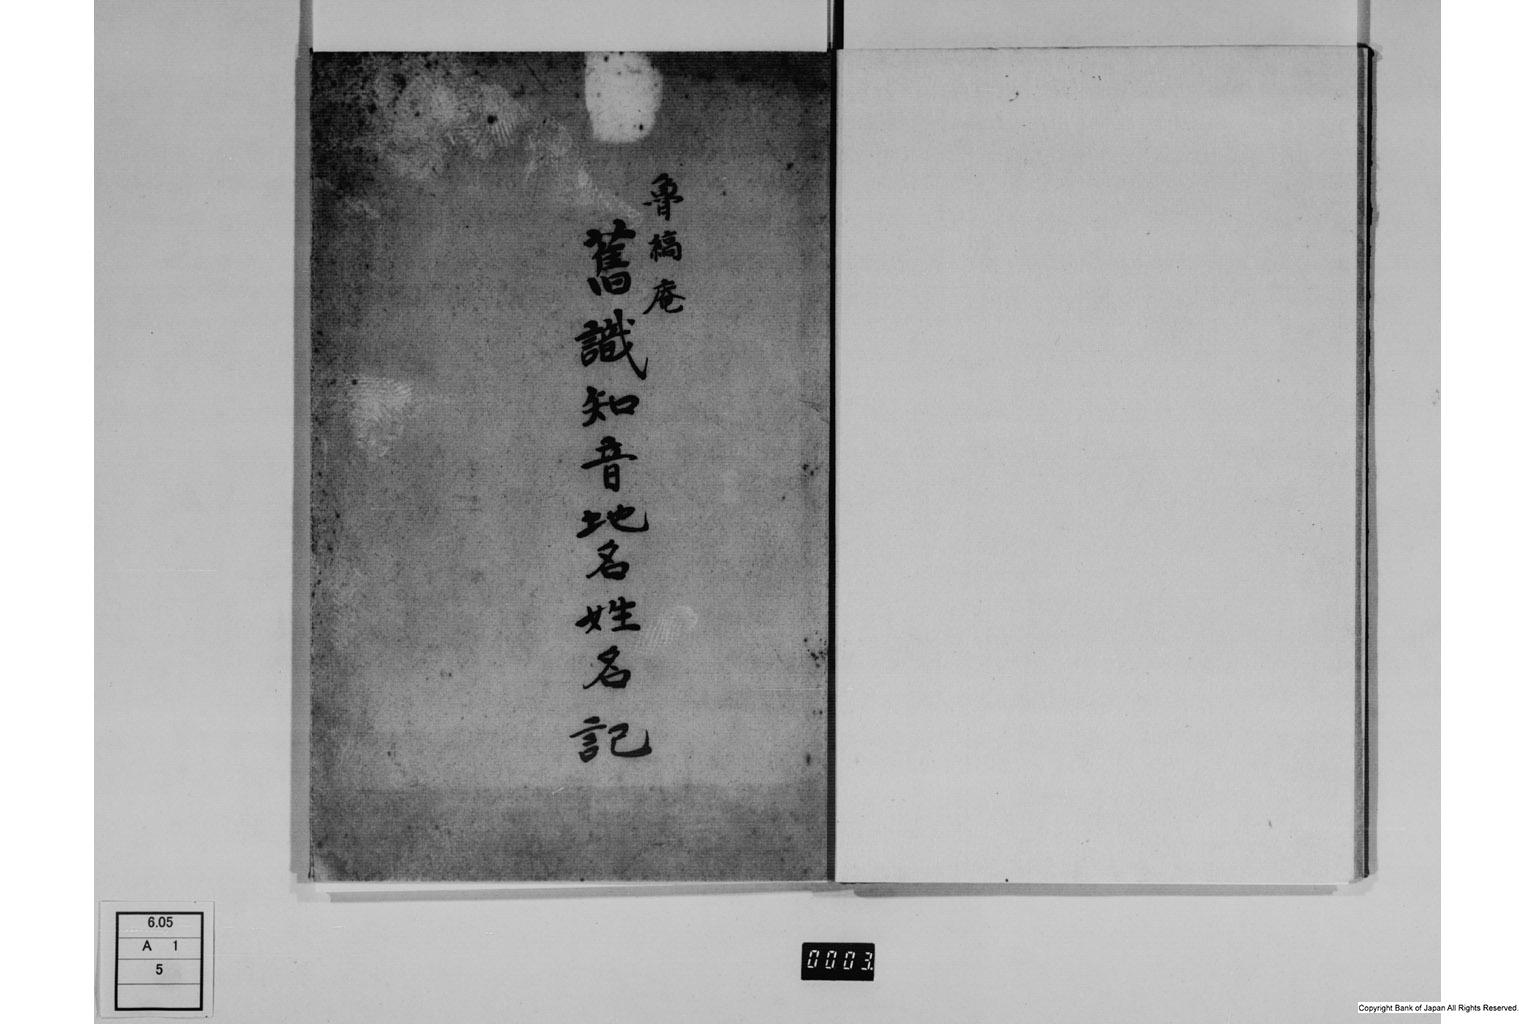 魯槁庵
舊識知音地名姓名記
6.05
A 1
5
0003
Copyright Bank of Japan All Rights Reserved.